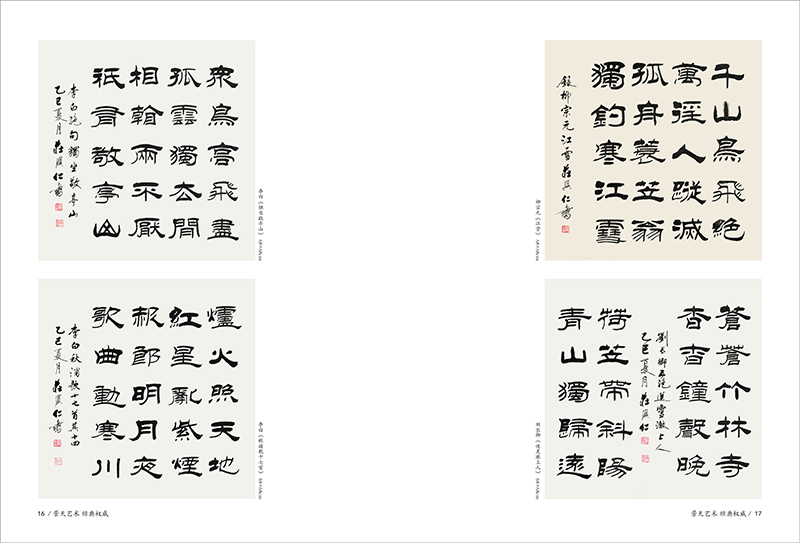 衆鳥高飛盡
孤雲獨去閒
相看兩不厭
祇有敬亭山
李白絶句獨坐敬亭山
乙巳夏月
李白《独坐敬亭山》 68×68cm
爐火照天地
紅星亂紫煙
赧郎明月夜
歌曲動寒川
李白秋浦歌十七首其十四
乙巳夏月
李白《秋浦歌十七首》 68×68cm
16 / 景天艺术 经典权威
千山鳥飛絶
萬徑人蹤滅
孤舟蓑笠翁
獨釣寒江雪
録柳宗元江雪
柳宗元《江雪》 68×68cm
蒼蒼竹林寺
杳杳鐘聲晚
劉長卿五絶送靈澈上人
乙巳夏月
荷笠帶斜陽
青山獨歸遠
刘长卿《送灵澈上人》 68×68cm
景天艺术 经典权威 / 17